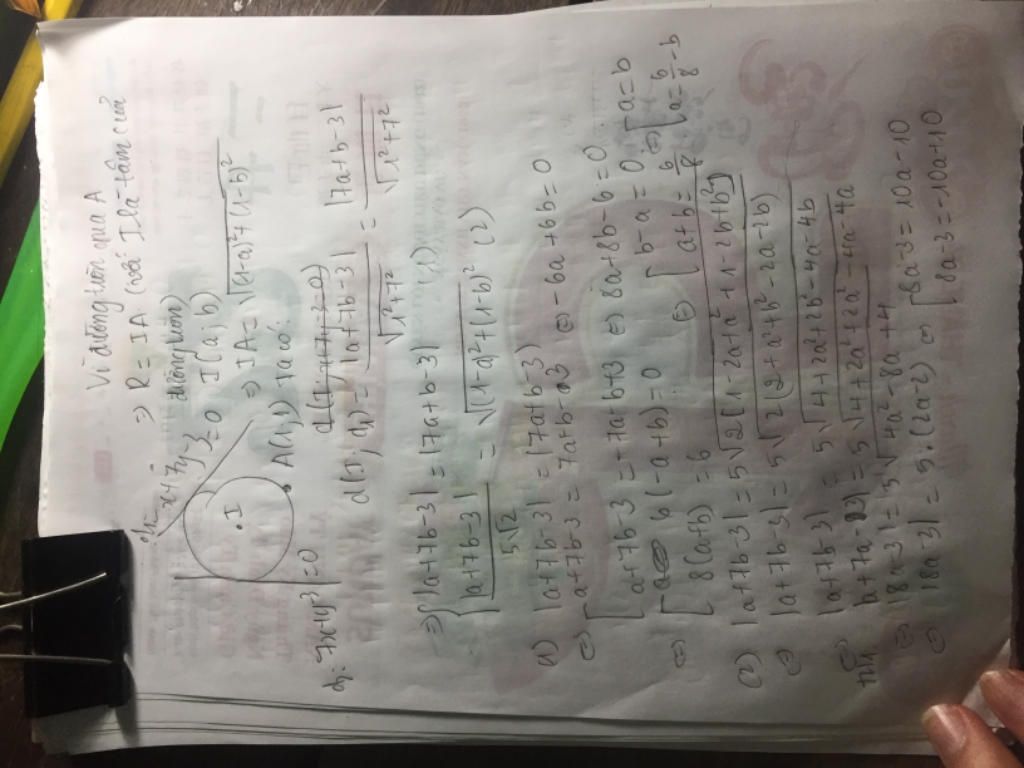 Vì đường tròn qua A
⇒ R = IA (với I là tâm của đường tròn)
x+7y-3=0 I(a;b)
.I
A(1,1) ⇒ IA = √((1-a)²+(1-b)²)
Ta có:
=0
d(I; d₁) = |a+7b-3| / √(1²+7²) = |7a+b-3| / √(1²+7²)
⇒ { |a+7b-3| = |7a+b-3| (1)
|a+7b-3| / 5√2 = √((1-a)²+(1-b)²) (2)
1) |a+7b-3| = |7a+b-3|
⇔ [ a+7b-3 = 7a+b-3 ⇔ -6a+6b=0
a+7b-3 = -7a-b+3 ⇔ 8a+8b-6=0
⇔ [ 6(-a+b)=0 ⇔ [ b-a=0 ⇔ [ a=b
8(a+b)=6 a+b=6/8 a=6/8-b
2) |a+7b-3| = 5√(2(1-2a+a²+1-2b+b²))
⇔ |a+7b-3| = 5√(2(2+a²+b²-2a-2b))
⇔ |a+7b-3| = 5√(4+2a²+2b²-4a-4b)
TH1 |a+7a-3| = 5√(4+2a²+2a²-4a-4a)
⇔ |8a-3| = 5√(4a²-8a+4)
⇔ |8a-3| = 5.(2a-2) ⇔ [ 8a-3=10a-10
8a-3=-10a+10